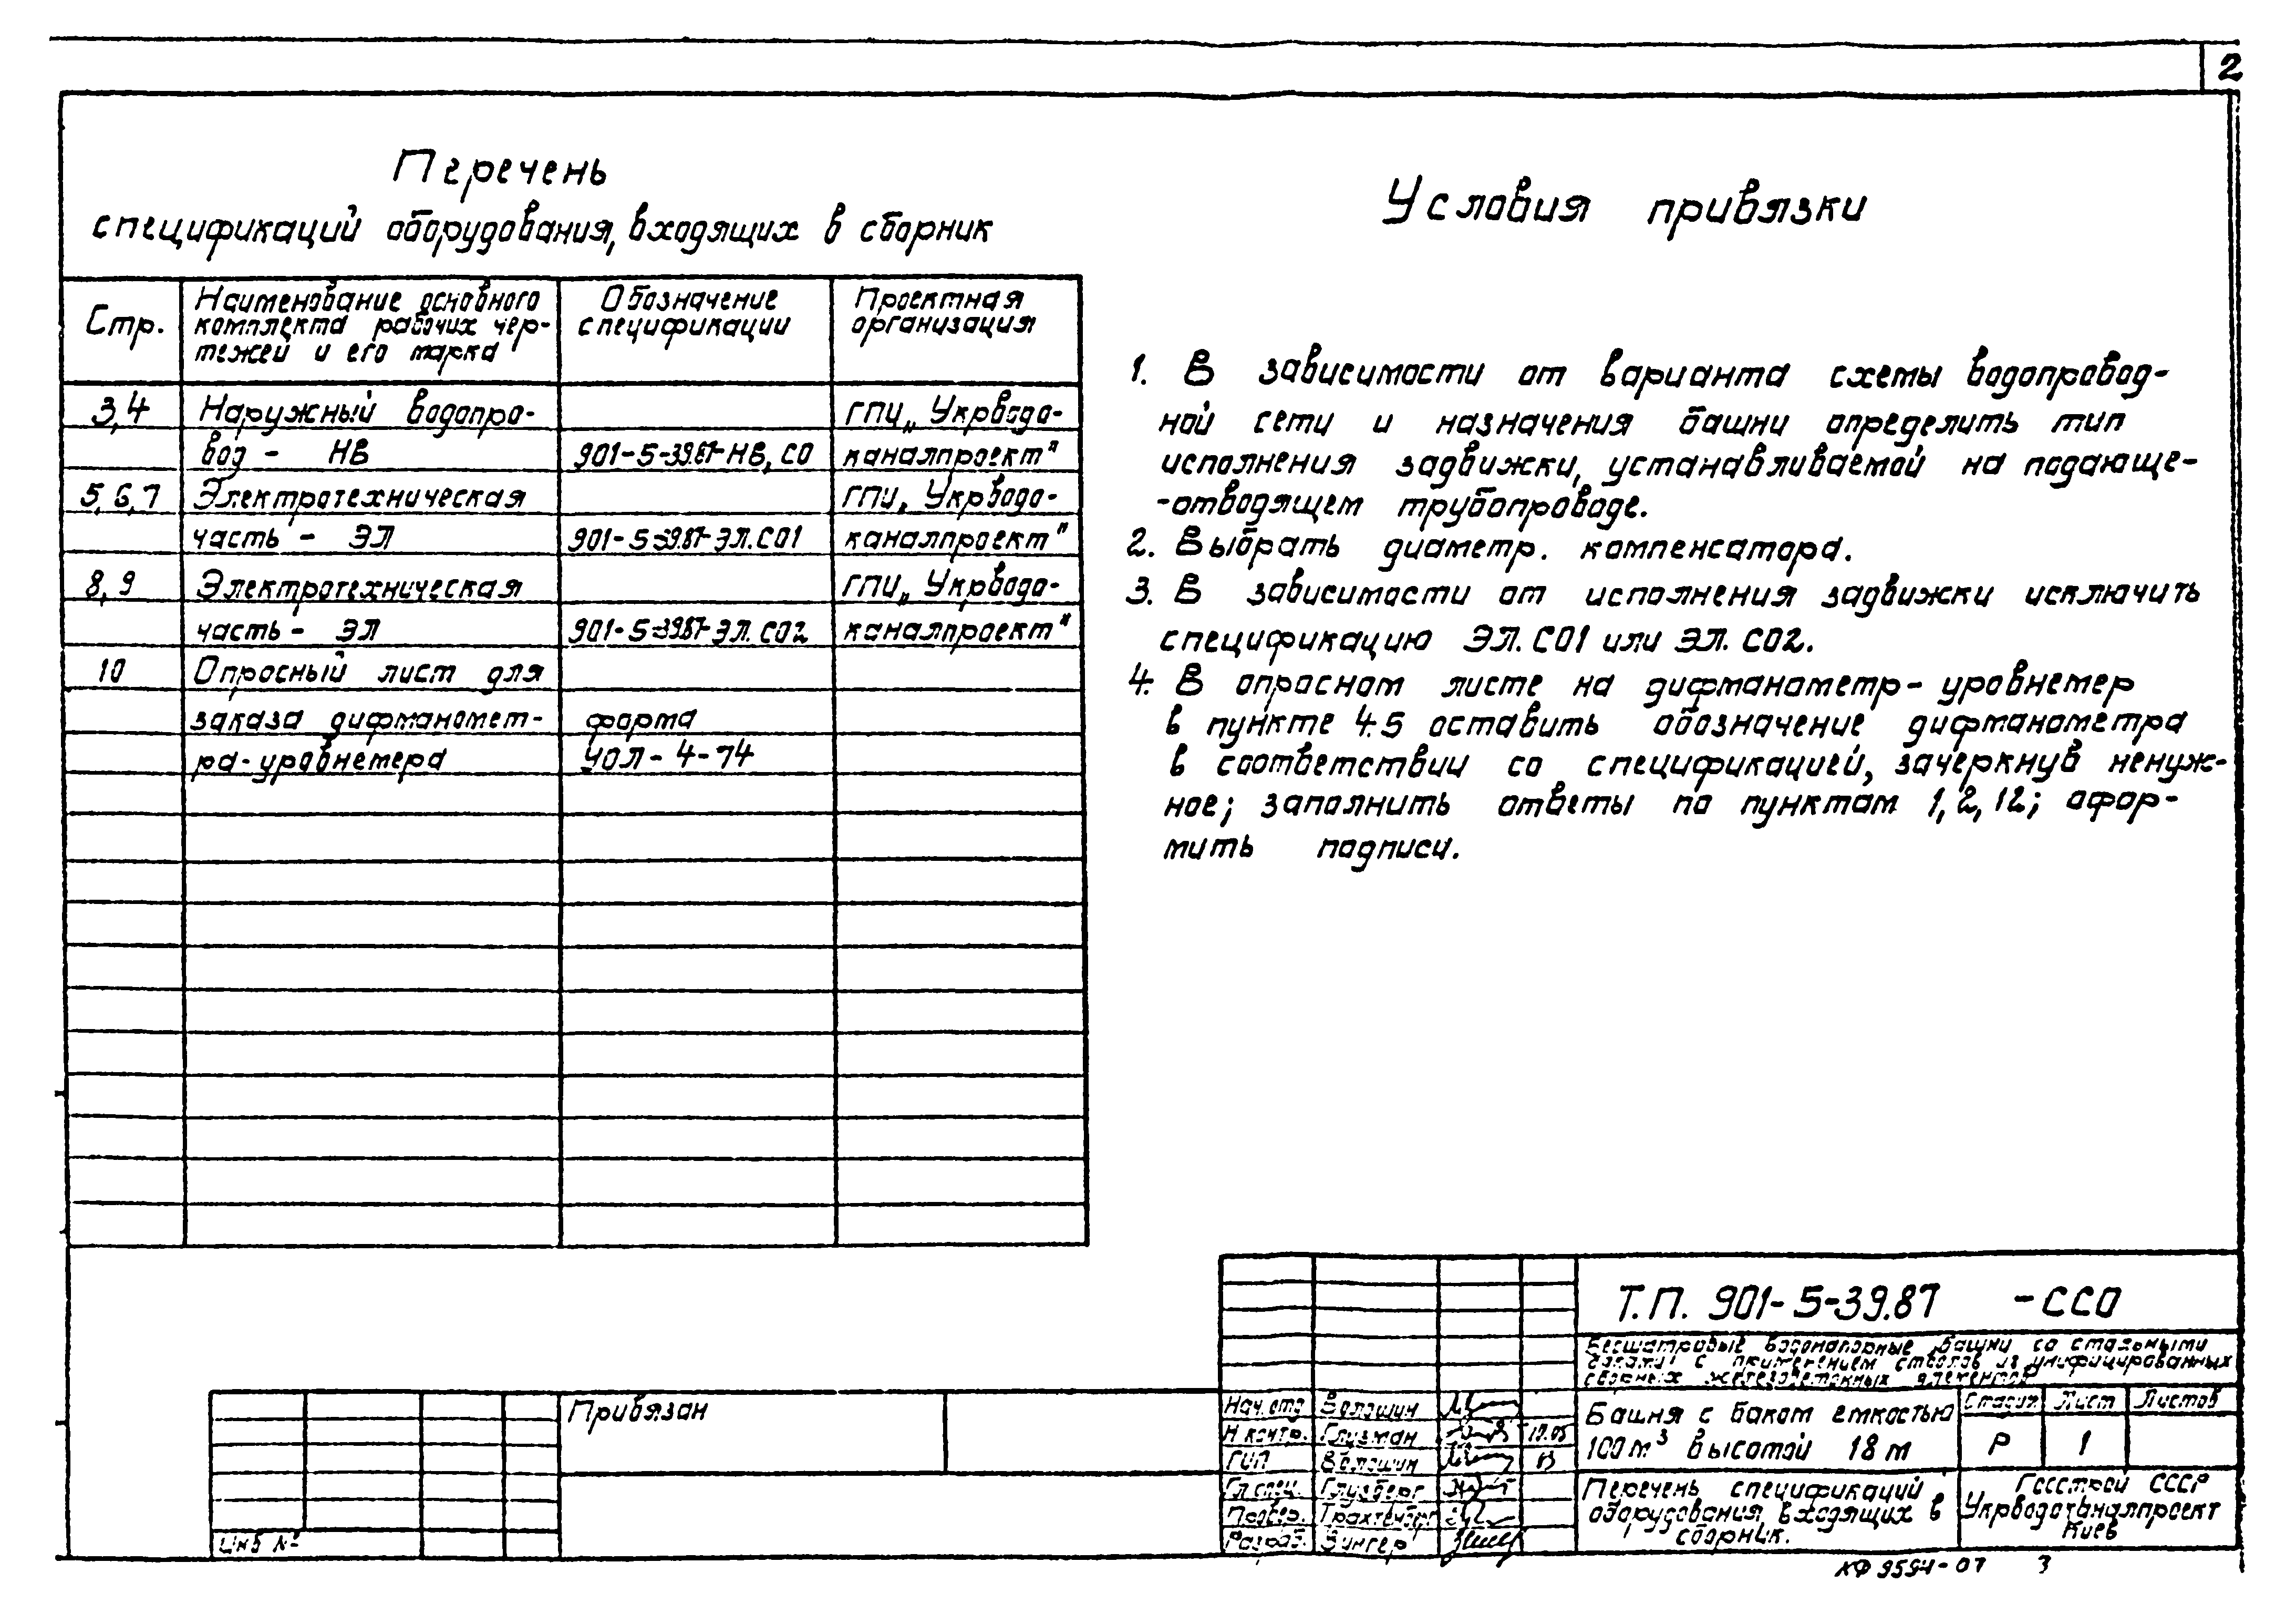 2
Перечень
спецификаций оборудования, входящих в сборник
Стр.
Наименование основного
комплекта рабочих чер-
тежей и его марка
Обозначение
спецификации
Проектная
организация
3,4 Наружный водопро- ГПИ „Укрводо-
вод - НВ 901-5-39.87-НВ, СО каналпроект"
5,6,7 Электротехническая ГПИ „Укрводо-
часть - ЭЛ 901-5-39.87-ЭЛ.СО1 каналпроект"
8,9 Электротехническая ГПИ „Укрводо-
часть - ЭЛ 901-5-39.87-ЭЛ.СО2 каналпроект"
10 Опросный лист для
заказа дифманомет- форма
ра-уровнемера УОЛ-4-74
Условия привязки
1. В зависимости от варианта схемы водопровод-
ной сети и назначения башни определить тип
исполнения задвижки, устанавливаемой на подающе-
-отводящем трубопроводе.
2. Выбрать диаметр. компенсатора.
3. В зависимости от исполнения задвижки исключить
спецификацию ЭЛ.СО1 или ЭЛ.СО2.
4. В опросном листе на дифманометр-уровнемер
в пункте 4.5 оставить обозначение дифманометра
в соответствии со спецификацией, зачеркнув ненуж-
ное; заполнить ответы по пунктам 1,2,12; офор-
мить подписи.
Т.П. 901-5-39.87 -ССО
Бесшатровые водонапорные башни со стальными
баками с применением стволов из унифицированных
сборных железобетонных элементов
Башня с баком емкостью
100 м³ высотой 18 м
Стадия Лист Листов
Р 1
Перечень спецификаций
оборудования, входящих в
сборник.
Госстрой СССР
Укрводоканалпроект
Киев
Нач.отд Волошин
Н контр. Глузман
ГИП Волошин
Гл.спец. Глузберг
Провер. Трахтенберг
Разраб. Зингер
Привязан
Инв №
КФ 9594-07 3